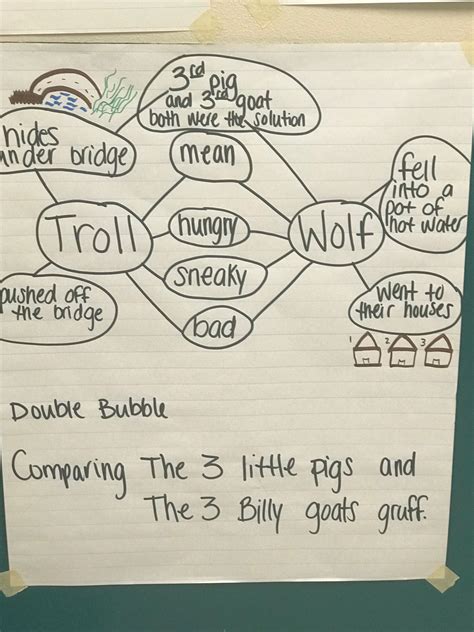 3rd pig
and 3rd goat
both were the solution
hides
under bridge
mean
fell
into a
pot of
hot water
Troll
hungry
Wolf
sneaky
pushed off
the bridge
bad
went to
their houses
1 2 3
Double Bubble
Comparing The 3 little pigs and
The 3 Billy goats gruff.